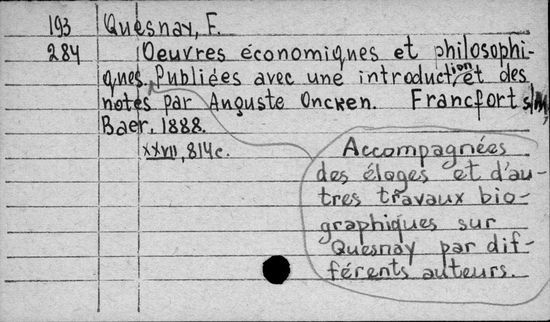 193 Quesnay, F.
284 Oeuvres économiques et philosophi-
ques. Publiées avec une introduction et des
notes par Auguste Oncken. Francfort s/M,
Baer, 1888.
XXVII, 814c.
Accompagnées
des éloges et d'au-
tres travaux bio-
graphiques sur
Quesnay par dif-
férents auteurs.